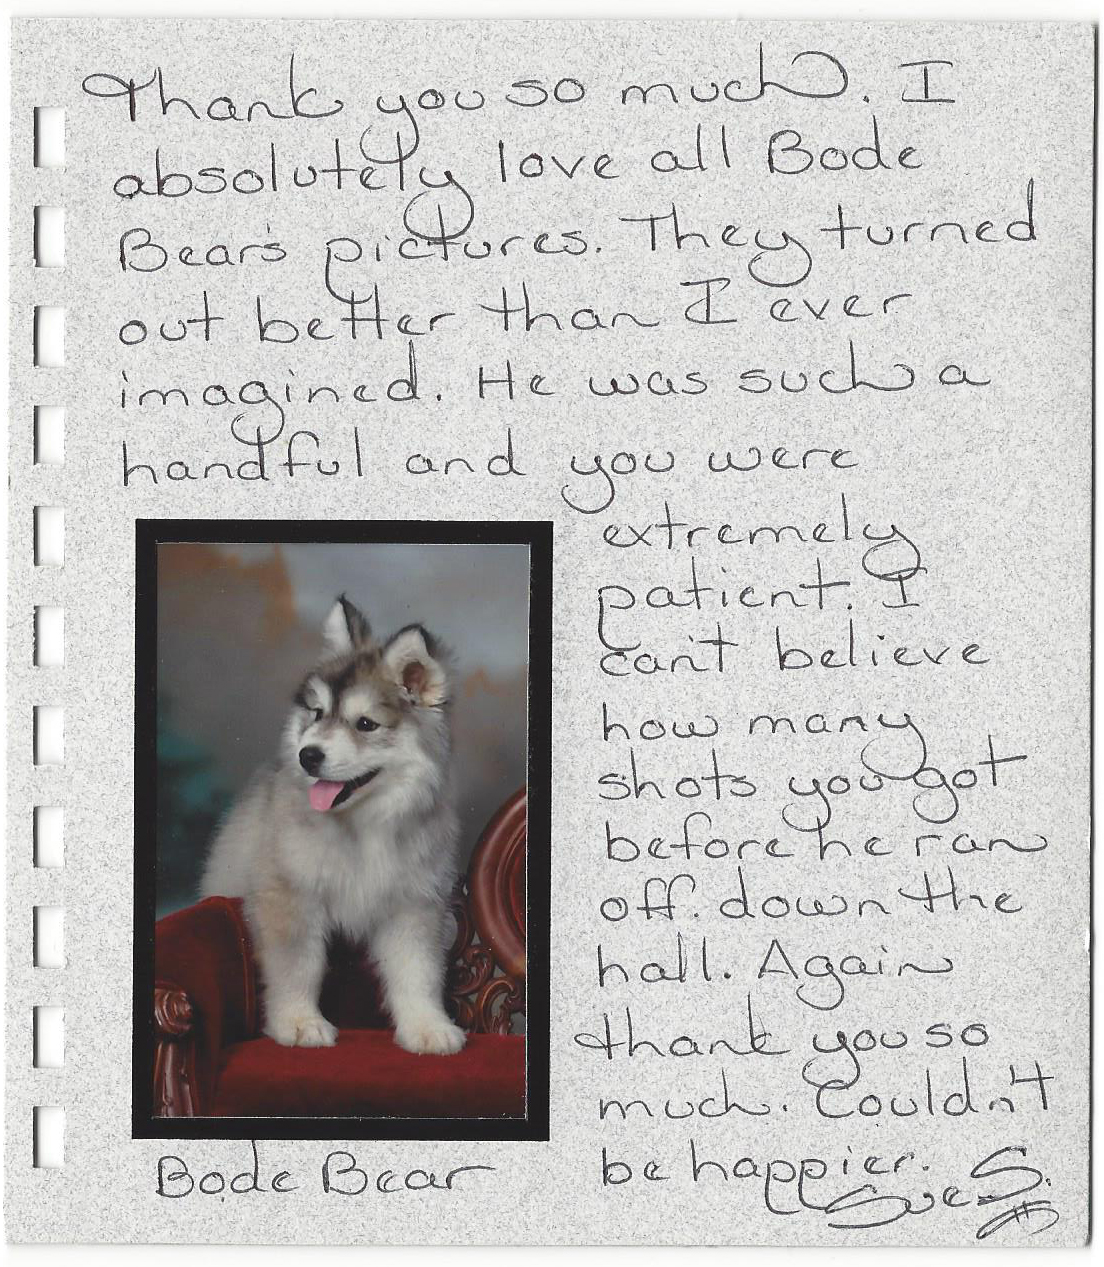 Thank you so much. I
absolutely love all Bode
Bear's pictures. They turned
out better than I ever
imagined. He was such a
handful and you were
extremely
patient. I
can't believe
how many
shots you got
before he ran
off. down the
hall. Again
thank you so
much. Couldn't
be happier.
Sue S.
Bode Bear